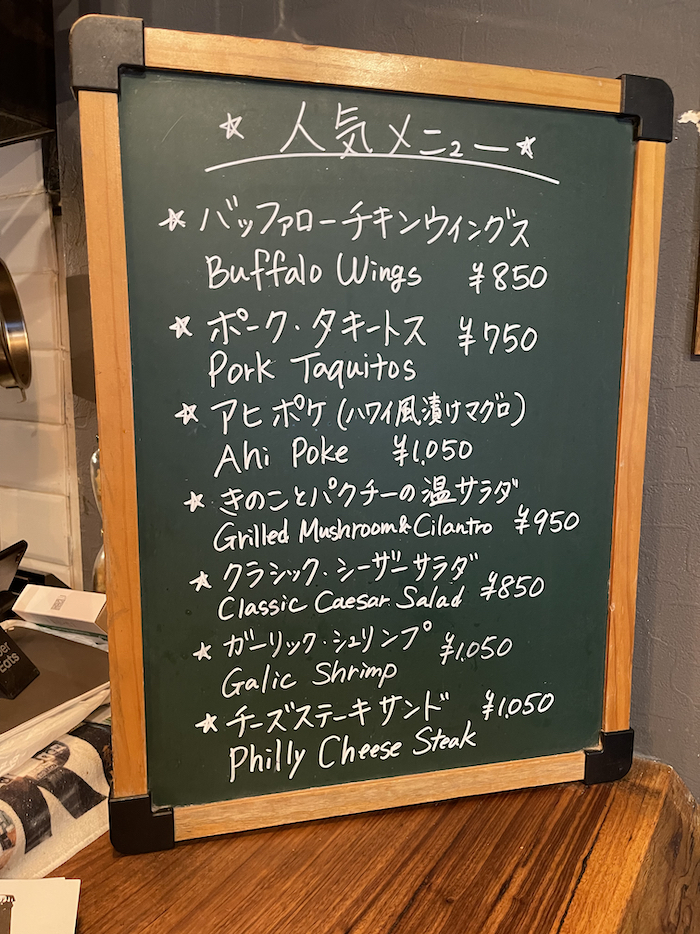 ☆ 人気メニュー ☆
☆ バッファローチキンウィングス
Buffalo Wings ¥850
☆ ポーク・タキートス ¥750
Pork Taquitos
☆ アヒポケ (ハワイ風漬けマグロ)
Ahi Poke ¥1,050
☆ きのことパクチーの温サラダ
Grilled Mushroom & Cilantro ¥950
☆ クラシック・シーザーサラダ
Classic Caesar Salad ¥850
☆ ガーリック・シュリンプ ¥1,050
Galic Shrimp
☆ チーズステーキサンド ¥1,050
Philly Cheese Steak
Eats